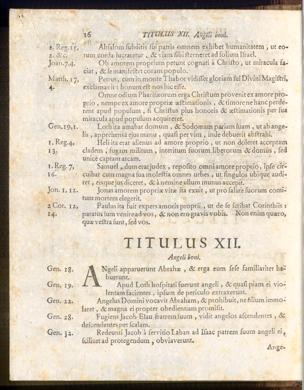 16 TITULUS XII. Angeli boni.
2. Reg. 15. Absalom subditis sui patris omnem exhibet humanitatem, ut eo-
rum corda lucraretur, & viam sibi sterneret ad solium Israel.
Joan. 7. 4. Ob amorem proprium petunt cognati à Christo, ut miracula fa-
ciat, & se manifestet coram populo.
Matth. 17. Petrus, cum in monte Thabor vidisset gloriam sui Divini Magistri,
4. exclamavit: bonum est nos hic esse.
Omne odium Pharisæorum erga Christum provenit ex amore pro-
prio, nempe ex amore propriæ æstimationis, & timore ne hanc perde-
rent apud populum, si Christus plus honoris & æstimationis per sua
miracula apud populum acquireret.
Gen. 19. 1. Loth ita amabat domum, & Sodomam patriam suam, ut ab ange-
lis, apprehensa ejus manu, quasi per vim, inde debuerit abstrahi.
1. Reg. 4. Heli ita erat alienus ab amore proprio, ut non doleret acceptam
13. cladem, fugam militum, interitum suorum liberorum & domûs, sed
unicè captam arcam.
1. Reg. 7. Samuel, dum erat judex, reposito omni amore proprio, ipse cir-
16. cuibat cum magna sua molestia omnes urbes, ut singulos ubique audi-
ret, eisque jus diceret, & à nemine ullum munus accepit.
Jon. 1. 12. Jonas amorem propriæ vitæ sic exuit, ut pro salute suorum comi-
tum mortem elegerit.
2 Cor. 12, Paulus ita fuit expers amoris proprii, ut de se scribat Corinthiis:
14. paratus sum venire ad vos, & non ero gravis vobis. Non enim quæro,
quæ vestra sunt, sed vos.
TITULUS XII.
Angeli boni.
Gen. 18. ANgeli apparuerunt Abrahæ, & erga eum sese familiariter ha-
buerunt.
Gen. 19. Apud Loth hospitati fuerunt angeli, & quasi piam ei vio-
lentiam facientes, ipsum de periculo extraxerunt.
Gen. 22. Angelus Domini vocavit Abraham, & prohibuit, ne filium immo-
laret, & magna ei propter obedientiam promisit.
Gen. 28. Fugiens Jacob Elau fratrem suum, vidit angelos ascendentes, &
descendentes per scalam.
Gen. 32. Redeunti Jacob à servitio Laban ad Isaac patrem suum angeli ei,
scilicet ad protegendum, obviaverunt.
Ange-